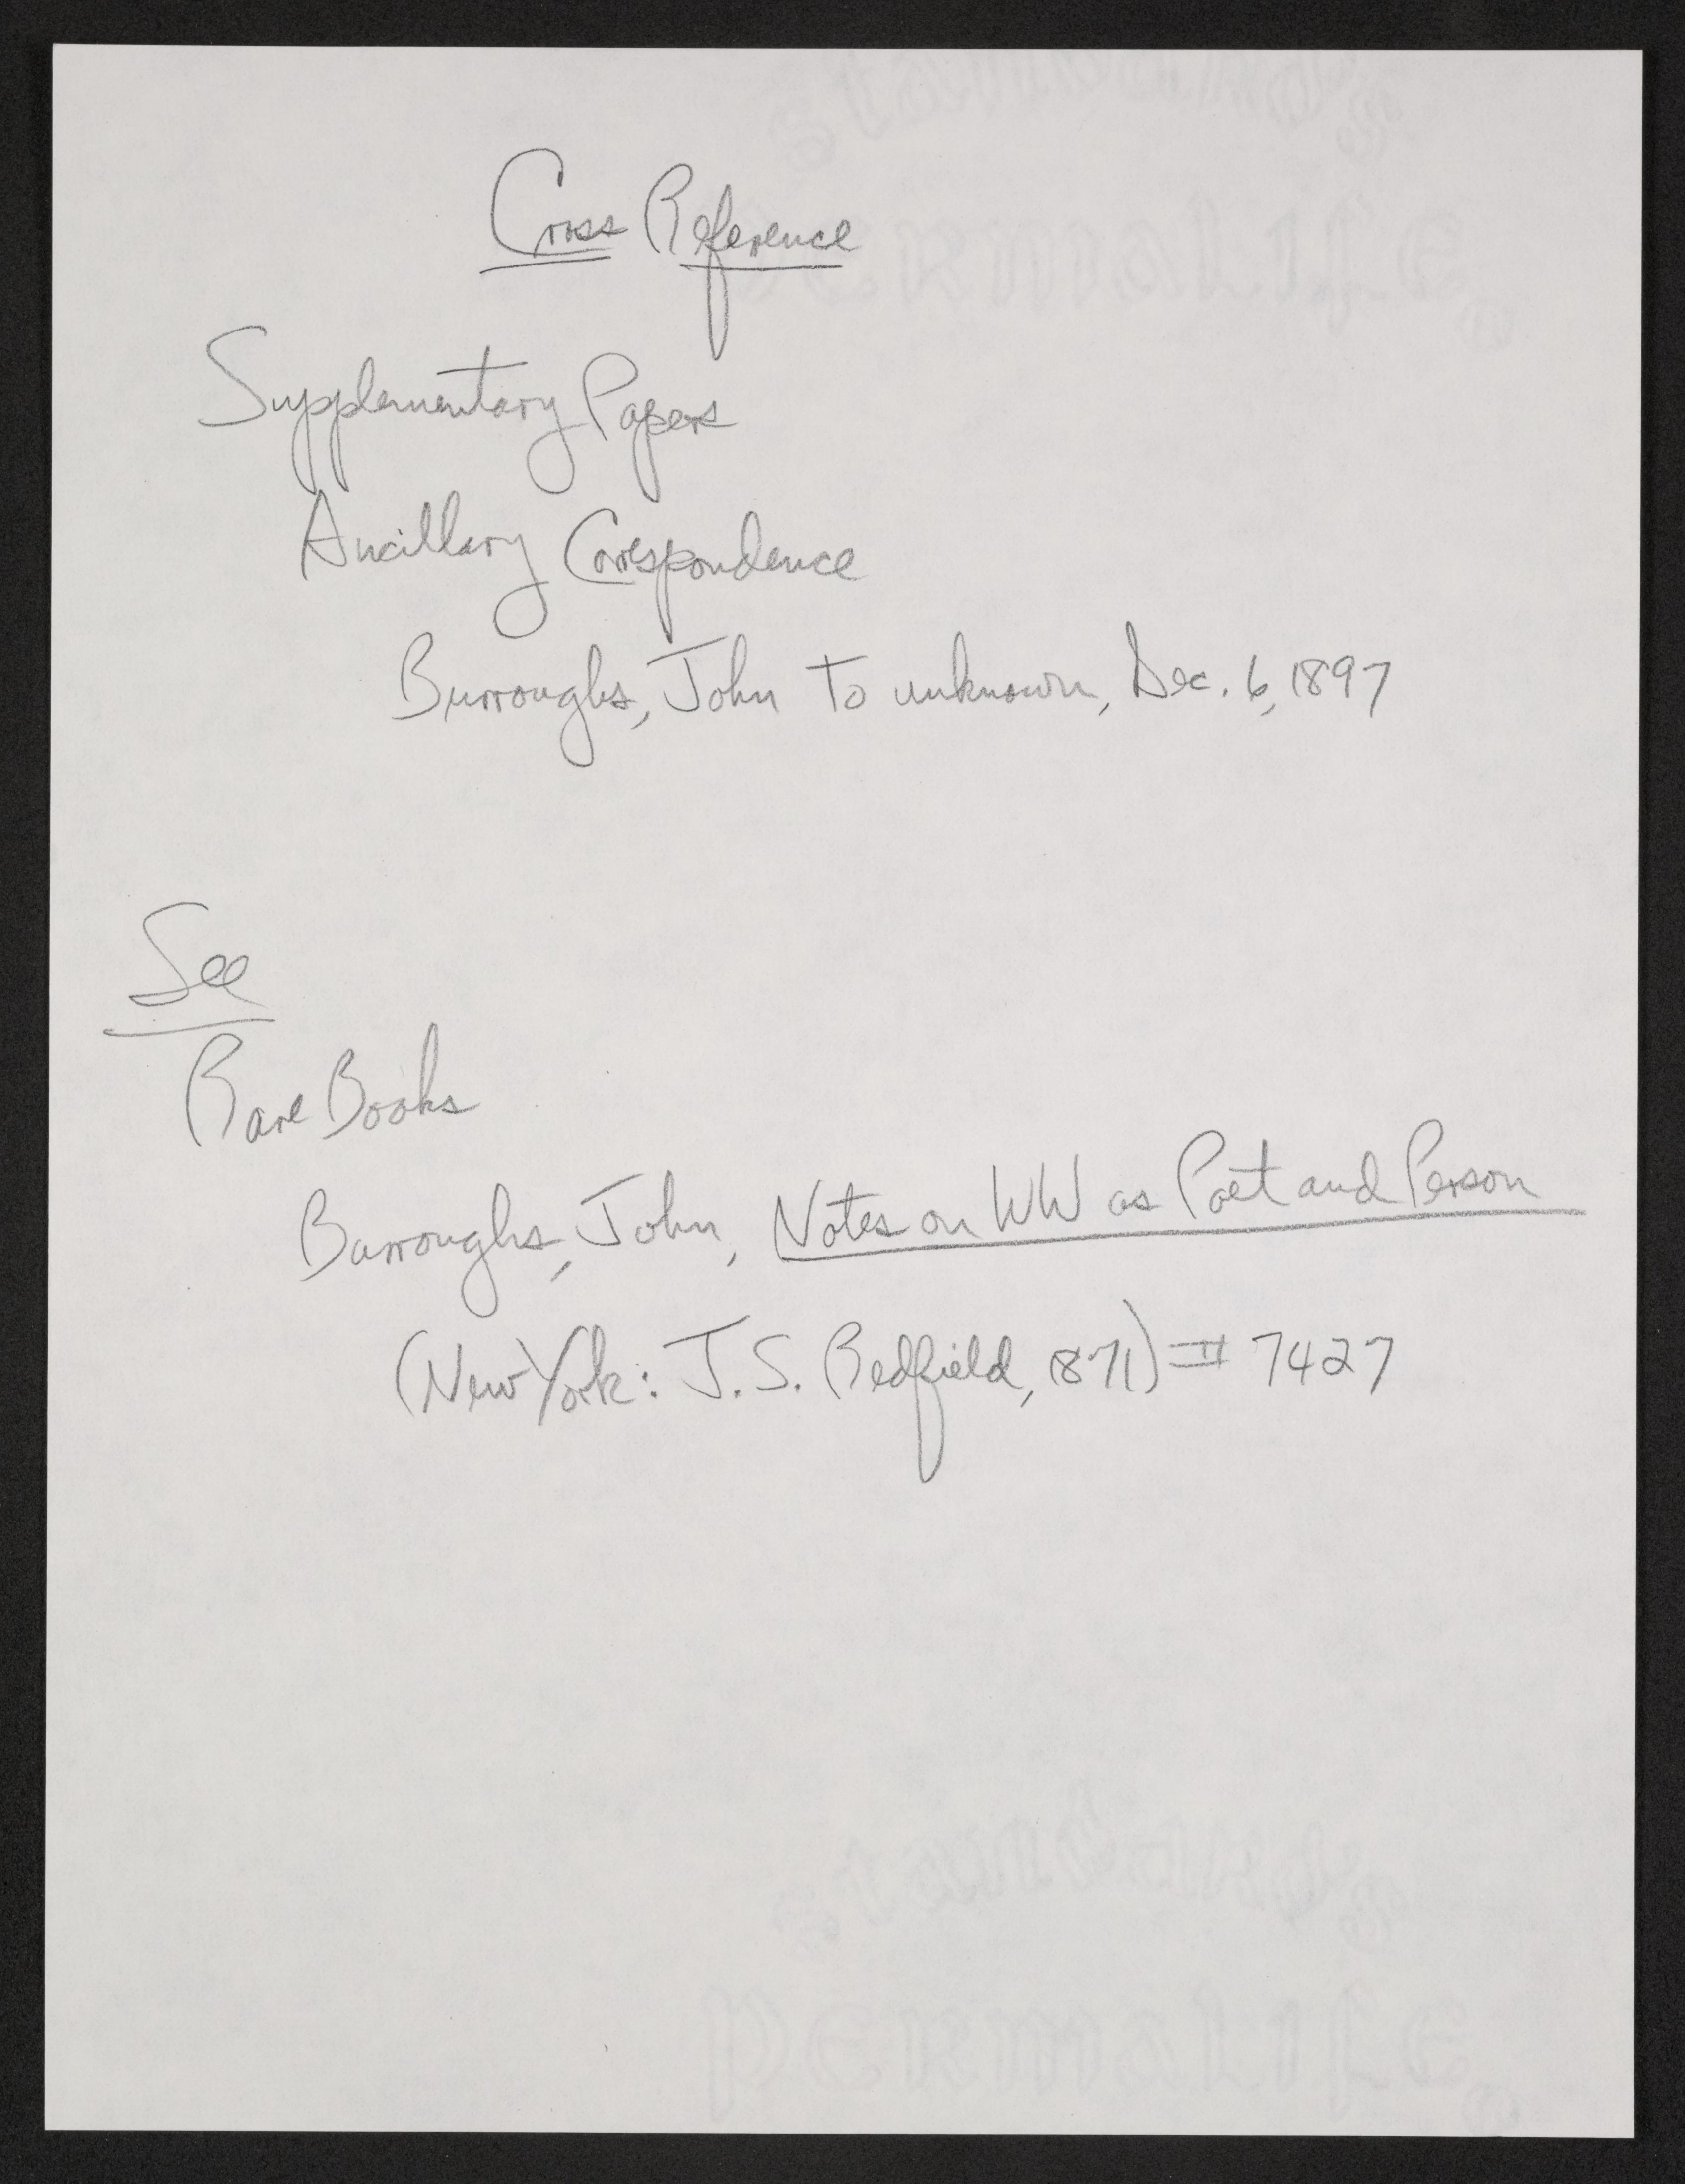 Cross Reference
Supplementary Papers
Ancillary Correspondence
Burroughs, John to unknown, Dec. 6, 1897
See
Rare Books
Burroughs, John, Notes on WW as Poet and Person
(New York: J.S. Redfield, 1871) # 7427